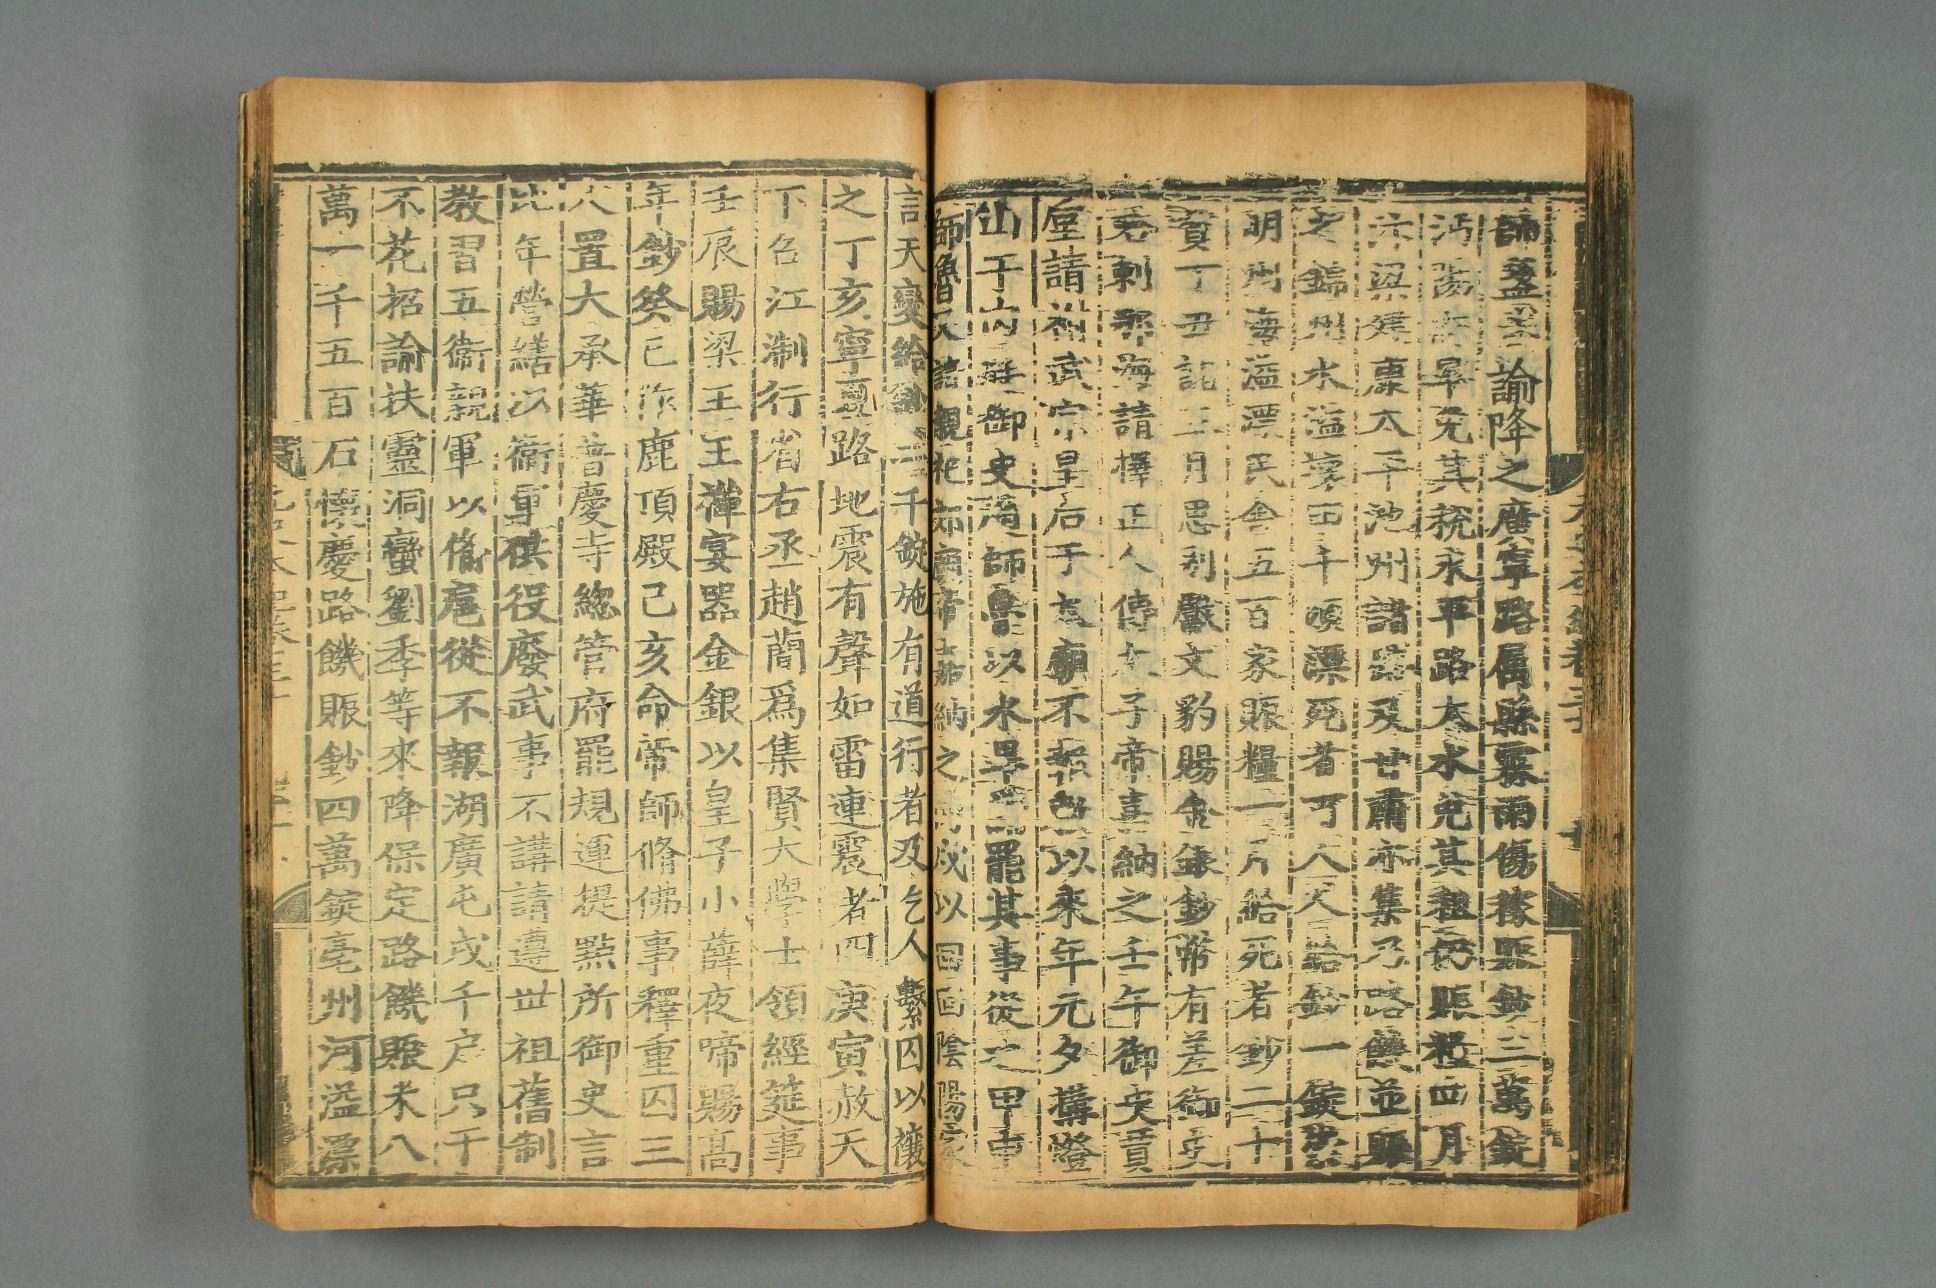 師蓋蓋諭降之廣寧路属縣霖雨傷稼賑鈔三萬錠
沔陽府旱免其税永平路大水免其租仍賑糧四月
汴梁
池州諸路及甘肅亦集乃路饑並賑
之錦州水溢壞田千頃漂死者百人人給鈔一錠
明州海溢漂民舍五百家賑糧一月給死者鈔二十
貫丁丑
文豹賜金銀鈔幣有差御史
海請擇正人傅太子帝嘉納之壬午御史賈
垕請祔武宗皇后于太廟不報
以來年元夕搆燈
山于内廷御史
師魯以水旱請罷其事從之甲申
師魯又請親祀
帝嘉納之
戌以回回陰陽家
言天變給鈔二千錠施有道行者及乞人繫囚以禳
之丁亥寧夏路地震有聲如雷連震者四庚寅赦天
下召江浙行省右丞趙簡爲集賢大學士領經筵事
壬辰賜梁王王禪宴器金銀以皇子小薛夜啼賜高
年鈔癸巳作鹿頂殿己亥命帝師脩佛事釋重囚三
人置大承華普慶寺緫管府罷規運提點所御史言
比年營繕以衛軍供役廢武事不講請遵世祖舊制
教習五衛親軍以俻扈從不報湖廣屯戍千戶只干
不花招諭扶靈洞蠻劉季等來降保定路饑賑米八
萬一千五百石懷慶路饑賑鈔四萬錠亳州河溢漂